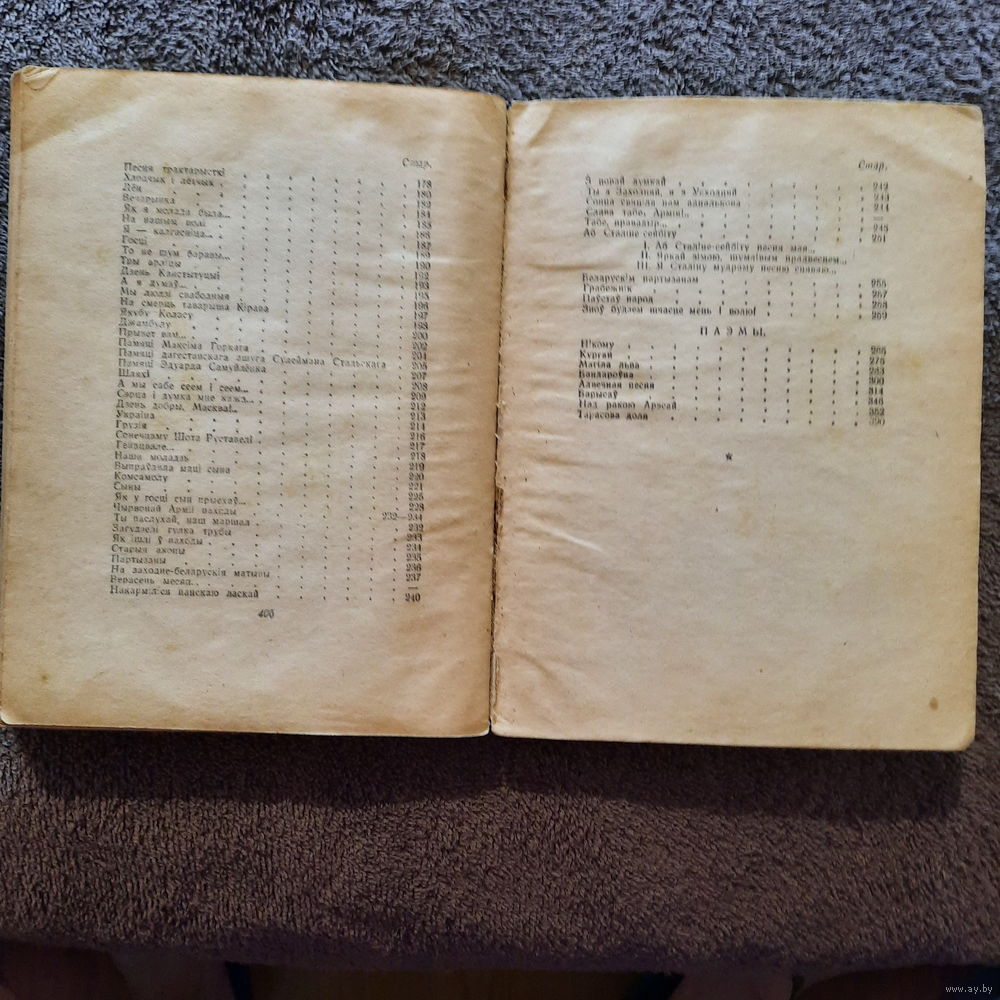 Стар.
Песня трактарысткі 178
Хлопчык і лётчык 180
Лён 182
Вечарынка 184
Як я молада была... 185
На нашым полі 185
Я — калгасніца... 187
Госці 189
То не шум баравы... 190
Тры арліцы 192
Дзень Канстытуцыі 193
А я думаў... 195
Мы людзі свабодныя 196
На смерць таварыша Кірава 197
Якубу Коласу 198
Джамбулу 200
Прывет вам... 202
Памяці Максіма Горкага 204
Памяці дагестанскага ашуга Сулеймана Стальскага 205
Памяці Эдуарда Самуйлёнка 207
Шляхі 208
А мы сабе сеем і сеем... 209
Сэрца і думка мне кажа... 212
Дзень добры, Масква!.. 213
Украіна 214
Грузія 216
Сонечнаму Шота Руставелі 217
Генацвале... 218
Наша моладзь 219
Выпраўляла маці сына 220
Комсамолу 221
Сыны 225
Як у госці сын прыехаў... 228
Чырвонай Арміі паходы 232—234
Ты паслухай, наш маршал 232
Загудзелі гулка трубы 233
Як ішлі ў паходы 234
Старыя акопы 235
Партызаны 236
На заходне-беларускія матывы 237
Верасень месяц... —
Накарміліся панскаю ласкай 240
406
Стар.
З новай думкай 242
Ты з Заходняй, я з Усходняй 243
Сонца свяціла нам аднолькова 244
Слава табе, Армія!.. —
Табе, правадыр... 245
Аб Сталіне сейбіту 251
I. Аб Сталіне-сейбіту песня мая...
II. Яркай зімою, шумлівым прадвеснем...
III. Я Сталіну мудраму песню спяваю...
Беларускім партызанам 255
Грабежнік 257
Паўстаў народ 258
Зноў будзем шчасце мець і волю! 259
ПАЭМЫ.
Нікому 265
Курган 275
Магіла льва 283
Бандароўна 300
Адвечная песня 314
Барысаў 346
Над ракою Арэсай 352
Тарасова доля 390
*
www.ay.by